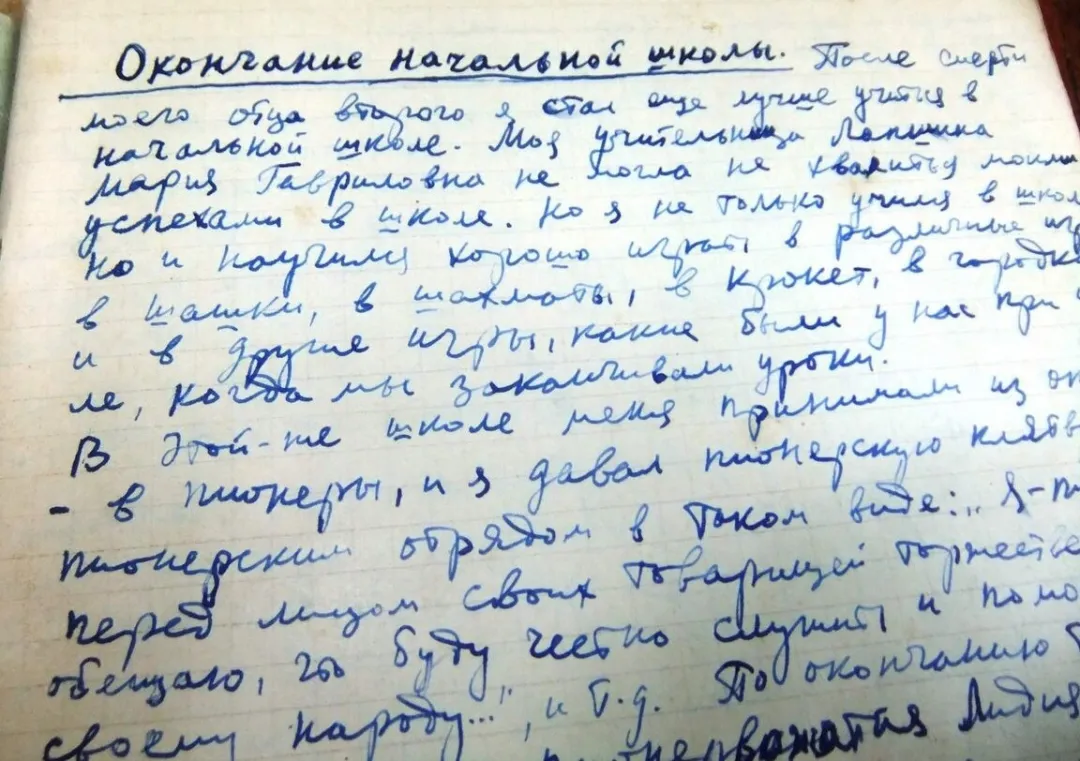 Окончание начальной школы. После смерти
моего отца второго я стал еще лучше учиться в
начальной школе. Моя учительница Лапшина
Мария Гавриловна не могла не хвалиться моими
успехами в школе. Но я не только учился в школ
но и научился хорошо играть в различные игр
в шашки, в шахматы, в крокет, в городк
и в другие игры, какие были у нас при
ле, когда мы заканчивали уроки.
В этой-же школе меня принимали из ок
- в пионеры, и я давал пионерскую клятв
пионерским отрядом в таком виде: „Я-пи
перед лицом своих товарищей торжестве
обещаю, что буду честно служить и помо
своему народу...", и т.д. По окончанию
пионервожатая Лидия